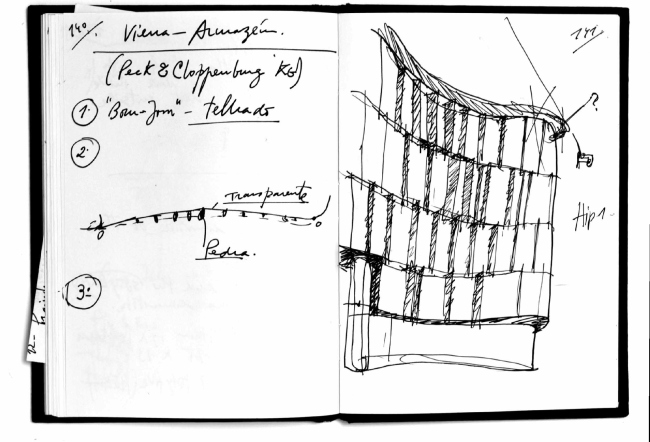 140.
Viena - Armazém.
(Peck & Cloppenburg KG)
1. "Bom-Jom" - telhado
2.
Transparente
Pedra.
3.
141
?
Hip 1-